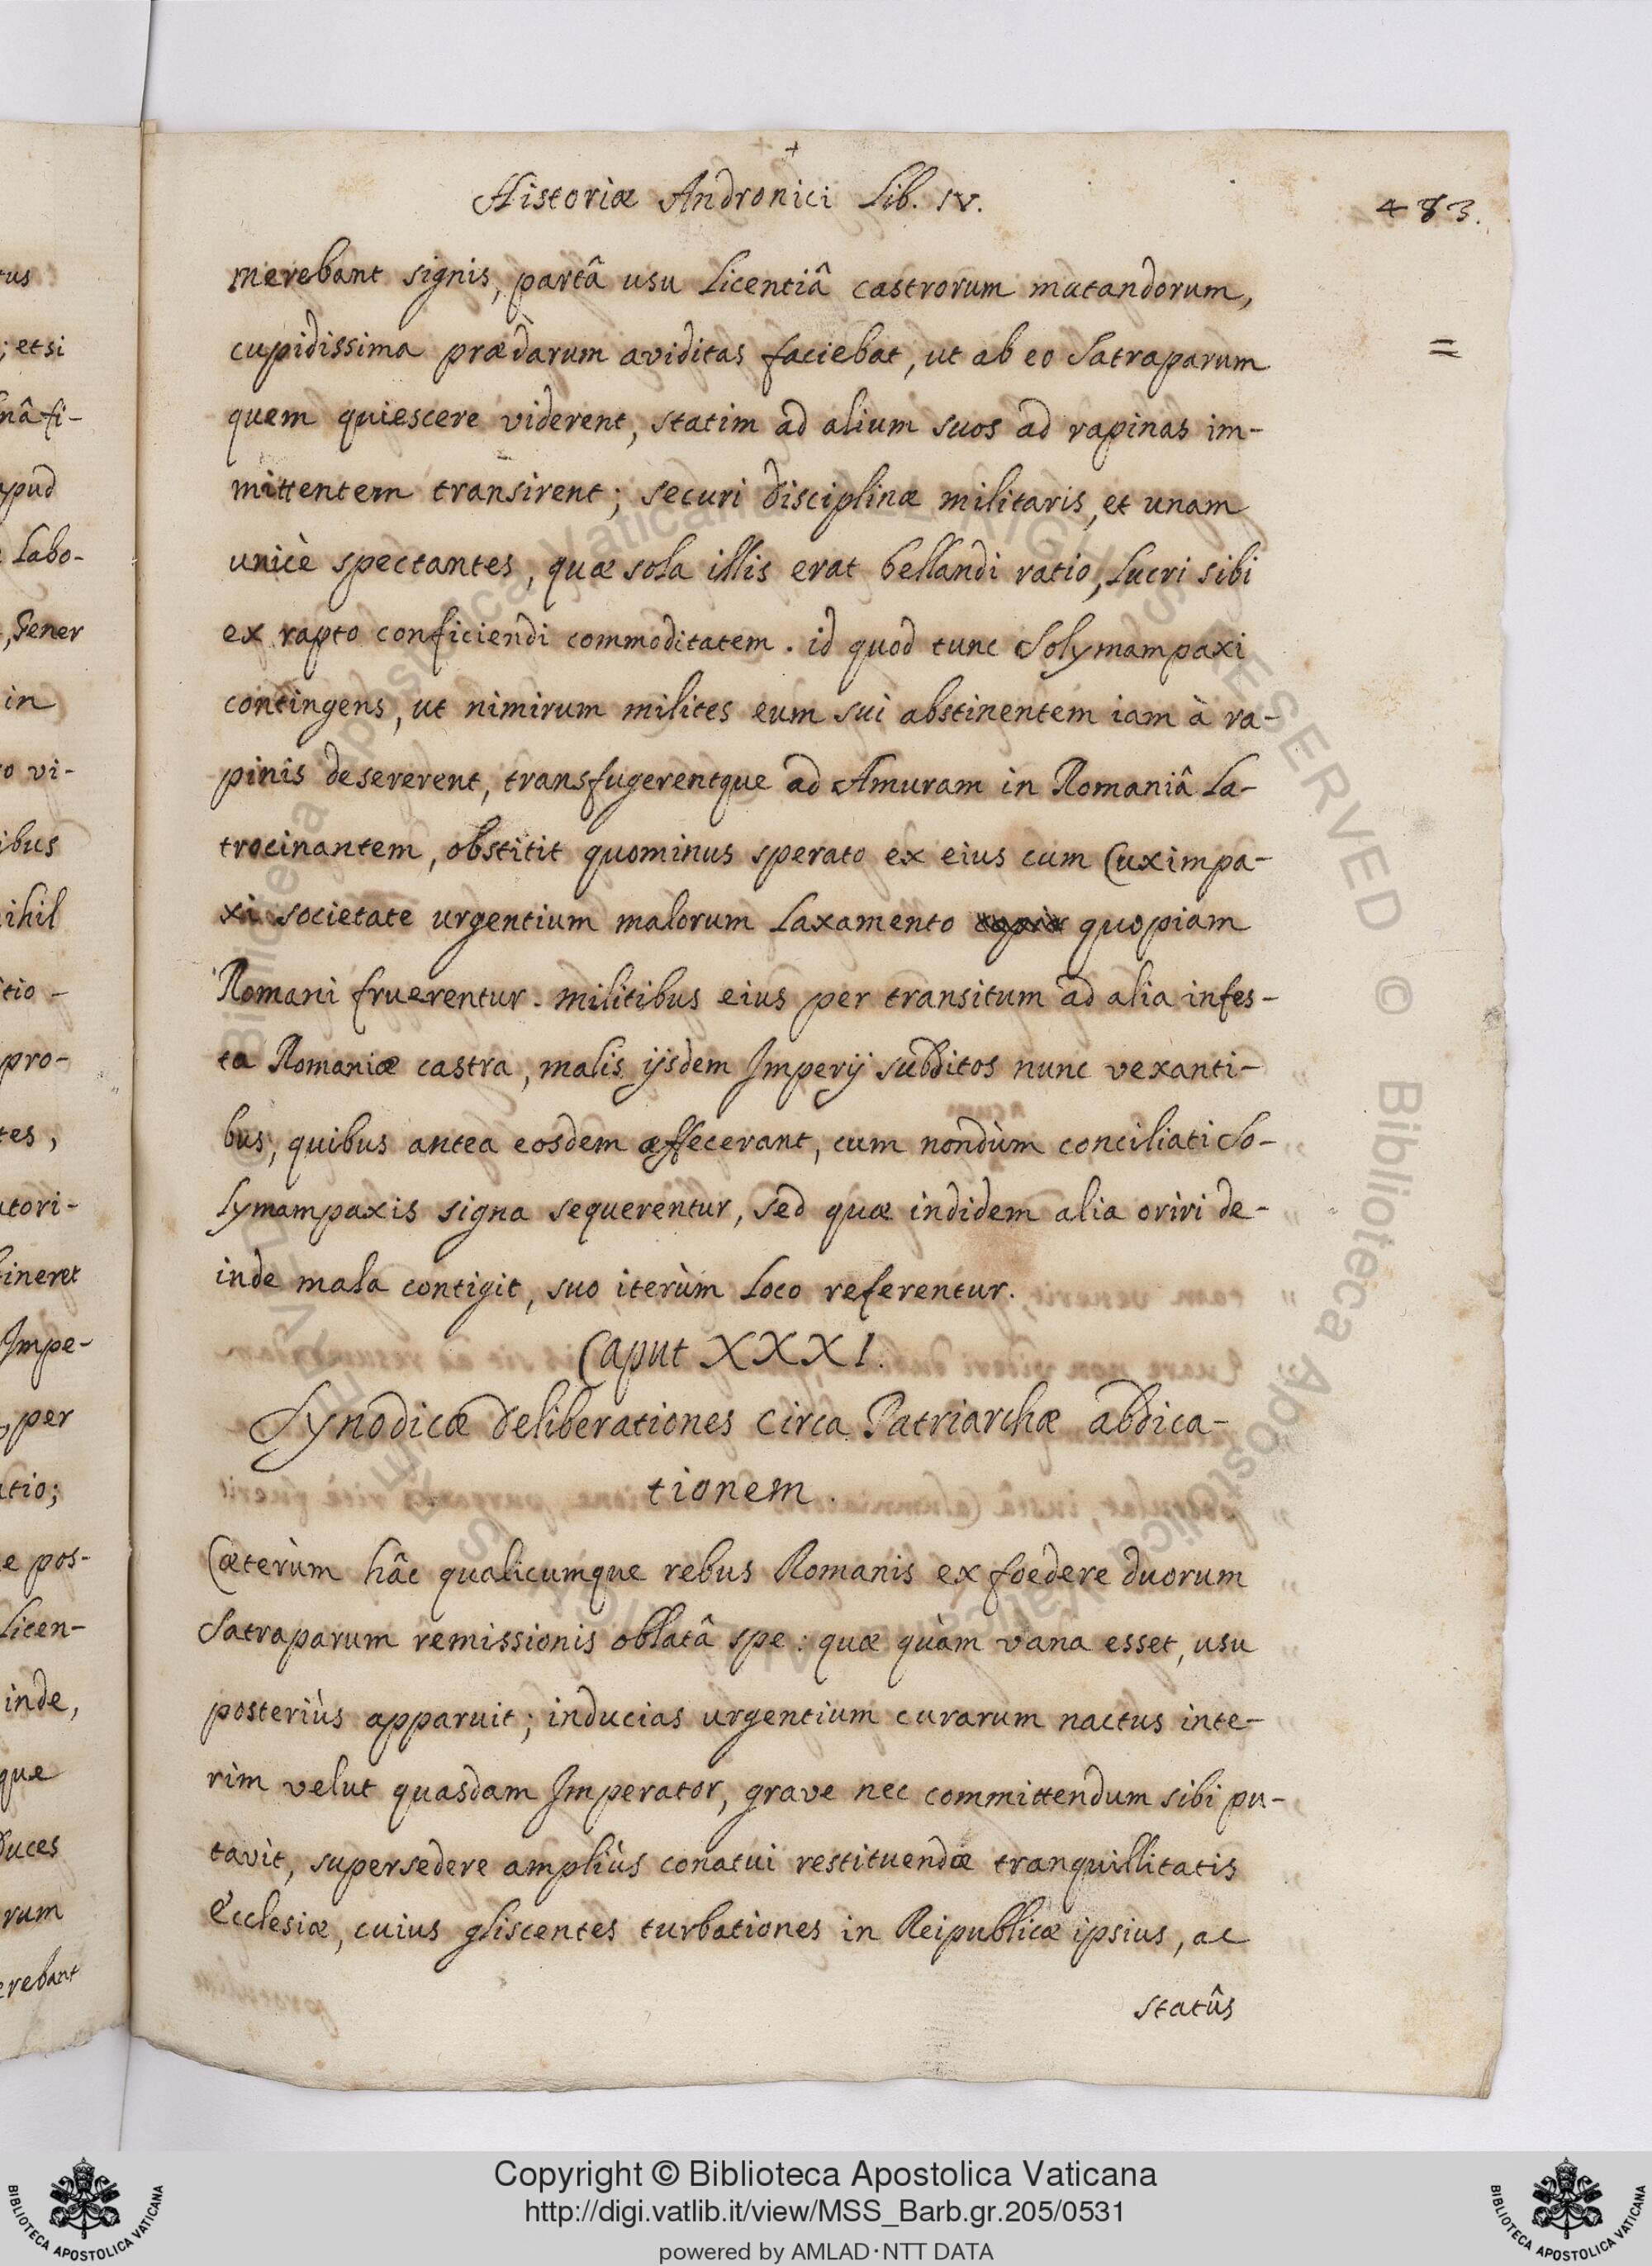 +
Historiæ Andronici Lib. IV.
483.
merebant signis, partâ usu licentiâ castrorum mutandorum,
cupidissima prædarum aviditas faciebat, ut ab eo Satraparum
=
quem quiescere viderent, statim ad alium suos ad rapinas im-
mittentem transirent; securi disciplinæ militaris, et unam
unicè spectantes, quæ sola illis erat bellandi ratio, lucri sibi
ex rapto conficiendi commoditatem. id quod tunc Solymampaxi
contingens, ut nimirum milites eum sui abstinentem iam à ra-
pinis desererent, transfugerentque ad Amuram in Romaniâ la-
trocinantem, obstitit quominus sperato ex eius cum Cuximpa-
xi societate urgentium malorum laxamento quopiam
Romani fruerentur. militibus eius per transitum ad alia infes-
ta Romaniæ castra, malis ijsdem Imperij subditos nunc vexanti-
bus, quibus antea eosdem affecerant, cum nondùm conciliati So-
lymampaxis signa sequerentur, sed quæ indidem alia oriri de-
inde mala contigit, suo iterùm loco referentur.
Caput XXXI.
Synodicæ deliberationes circa Patriarchæ abdica-
tionem.
Cæterùm hâc qualicumque rebus Romanis ex foedere duorum
Satraparum remissionis oblatâ spe: quæ quàm vana esset, usu
posteriùs apparuit; inducias urgentium curarum nactus inte-
rim velut quasdam Imperator, grave nec committendum sibi pu-
tavit, supersedere ampliùs conatui restituendæ tranquillitatis
Ecclesiæ, cuius gliscentes turbationes in Reipublicæ ipsius, ac
statûs
tus
; etsi
nâ fi-
apud
labo-
, Gener
in
o vi-
ibus
ihil
tio-
pro-
tes,
utori-
tineret
Impe-
per
atio;
e pos-
licen-
inde,
que
duces
rum
erebant
Copyright © Biblioteca Apostolica Vaticana
http://digi.vatlib.it/view/MSS_Barb.gr.205/0531
powered by AMLAD·NTT DATA
BIBLIOTECA APOSTOLICA VATICANA
BIBLIOTECA APOSTOLICA VATICANA